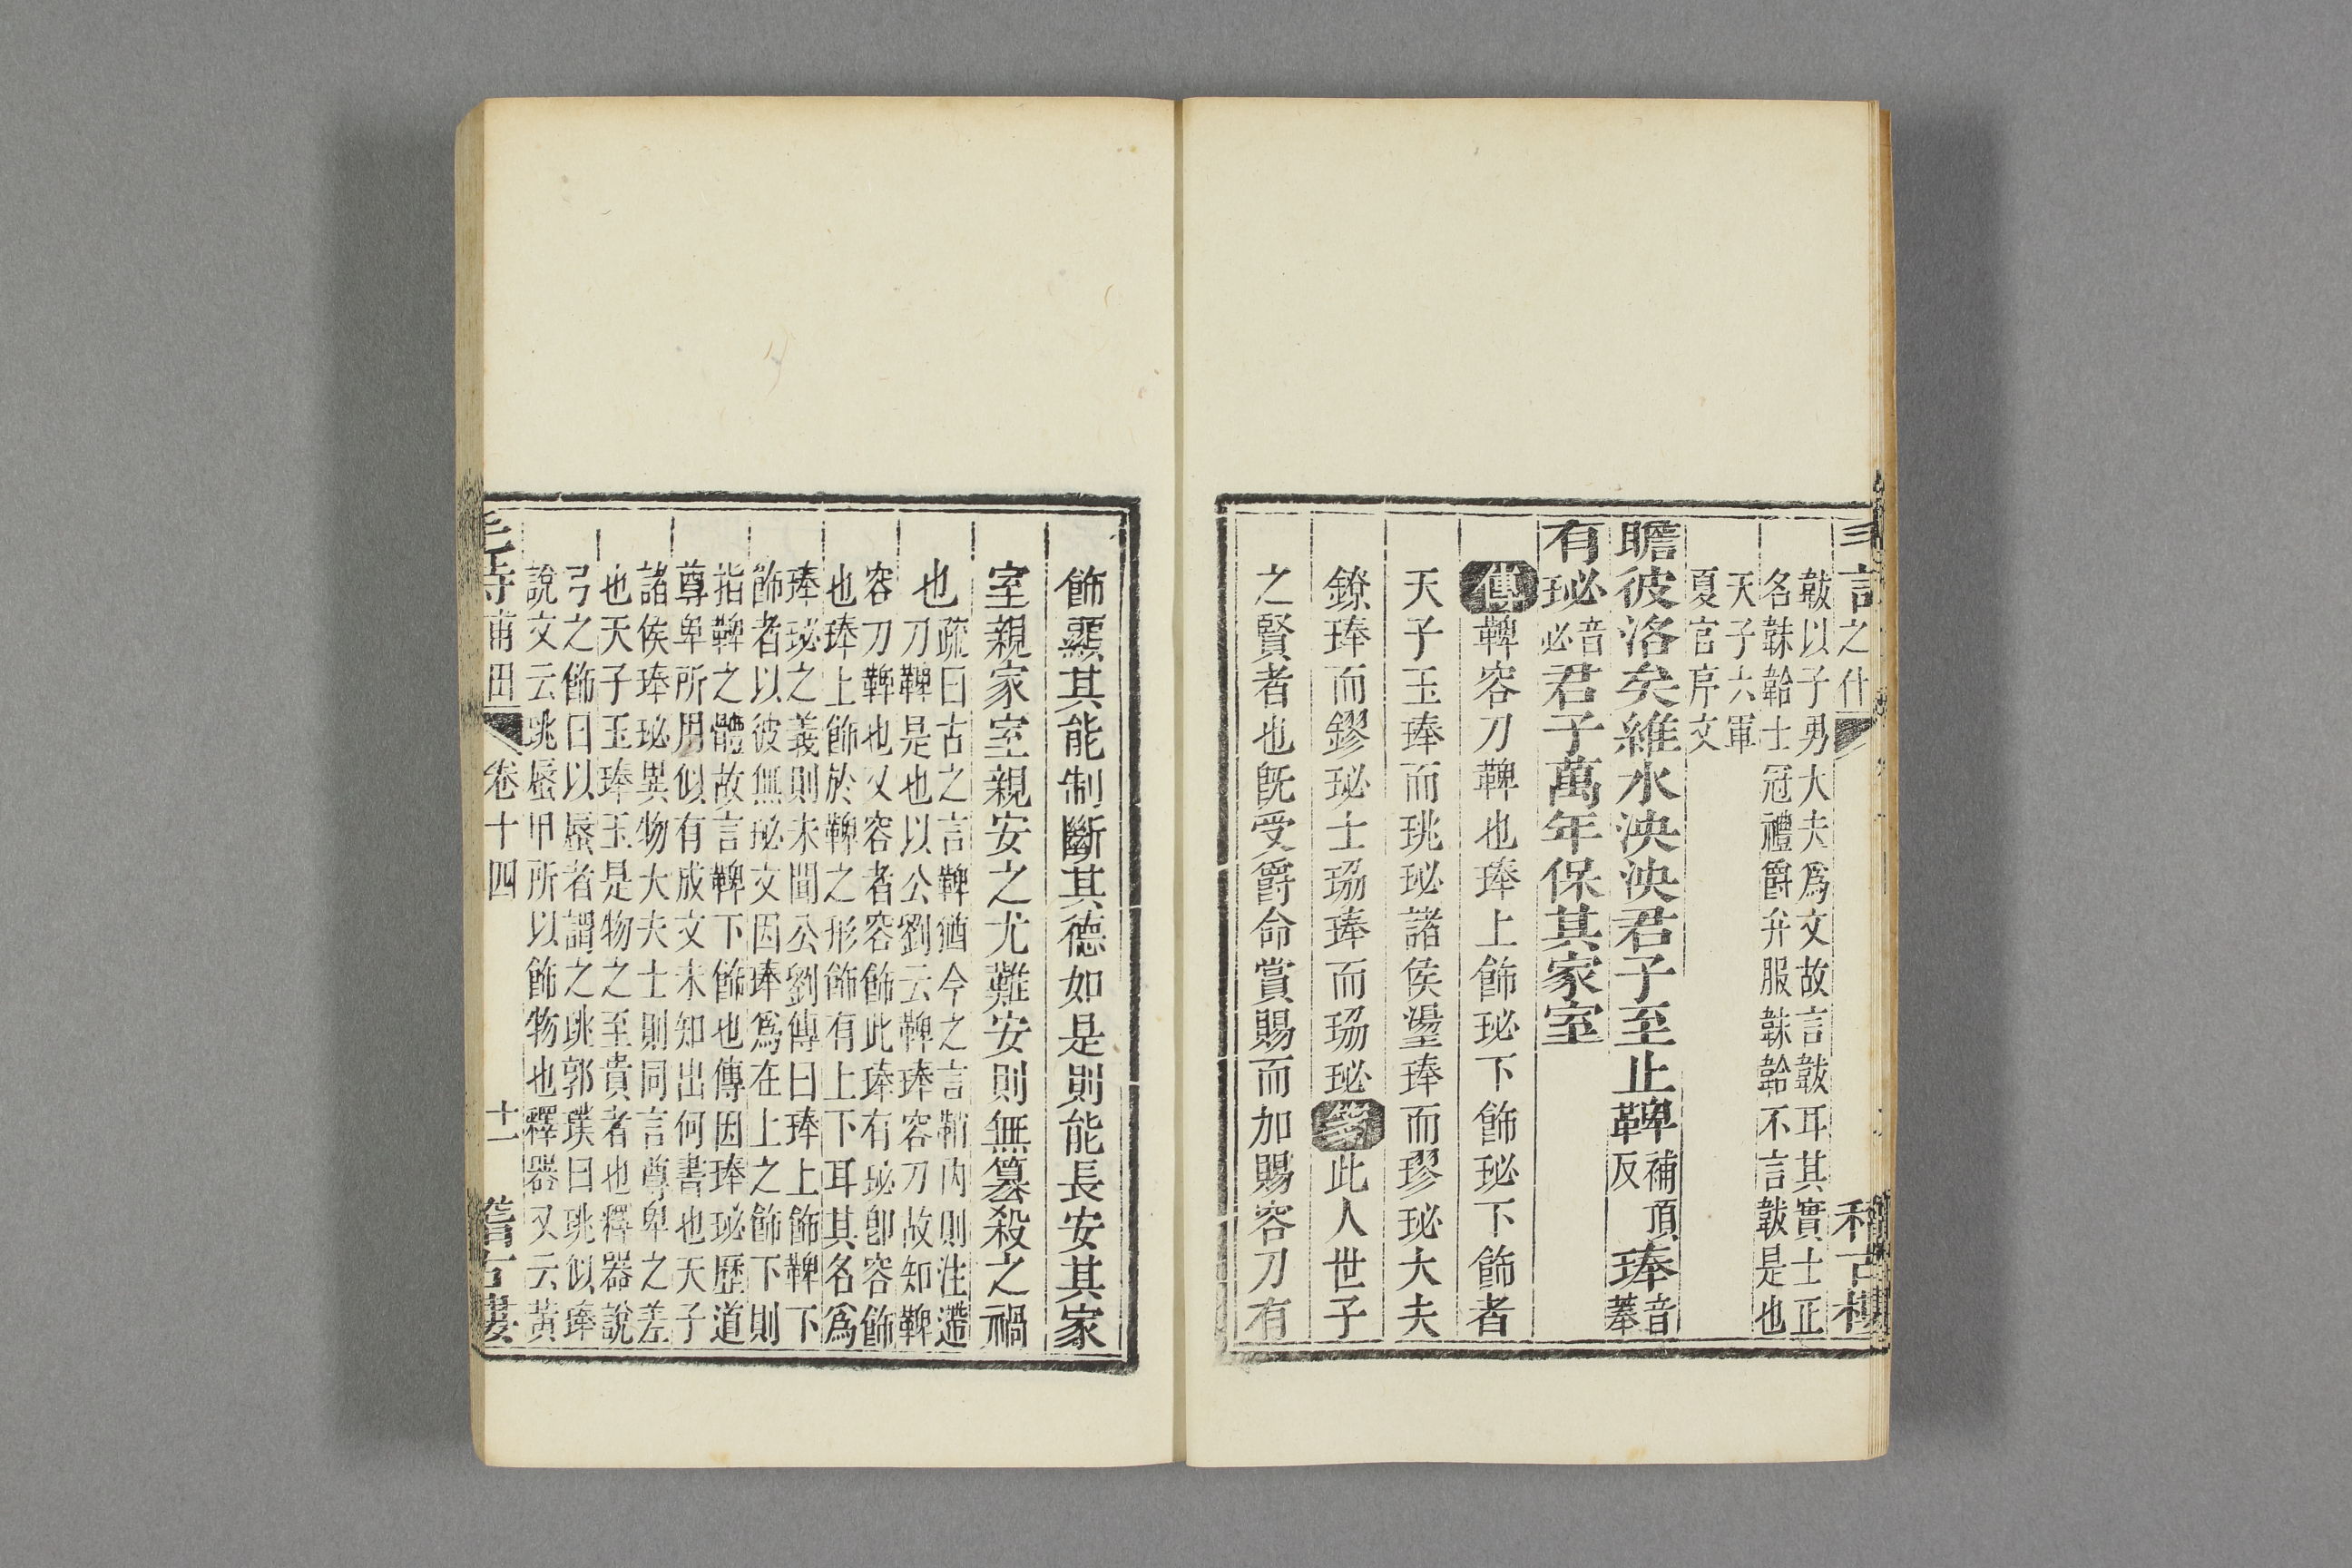 之什
韍以子勇大夫爲文故言韍耳其實士正
名韎韐士冠禮爵弁服韎韐不言韍是也
天子六軍
夏官序文
瞻彼洛矣維水泱泱君子至止鞞補頂反琫音菶
有珌音必君子萬年保其家室
傳鞞容刀鞞也琫上飾珌下飾珌下飾者
天子玉琫而珧珌諸侯璗琫而璆珌大夫
鐐琫而鏐珌士珕琫而珕珌箋此人世子
之賢者也旣受爵命賞賜而加賜容刀有
飾顯其能制斷其德如是則能長安其家
室親家室親安之尤難安則無篡殺之禍
也
疏曰古之言鞞猶今之言鞘內則注遰
刀鞞是也以公劉云鞞琫容刀故知鞞
容刀鞞也又容者容飾此琫有珌卽容飾
也琫上飾於鞞之形飾有上下耳其名爲
琫珌之義則未聞公劉傳曰琫上飾鞞下
飾者以彼無珌文因琫爲在上之飾下則
指鞞之體故言鞞下飾也傳因琫珌歷道
尊卑所用似有成文未知出何書也天子
諸侯琫珌異物大夫士則同言尊卑之差
也天子玉琫玉是物之至貴者也釋器說
弓之飾曰以蜃者謂之珧郭璞曰珧似琫
說文云珧蜃甲所以飾物也釋器又云黃
毛詩甫田 卷十四 十一 稽古樓